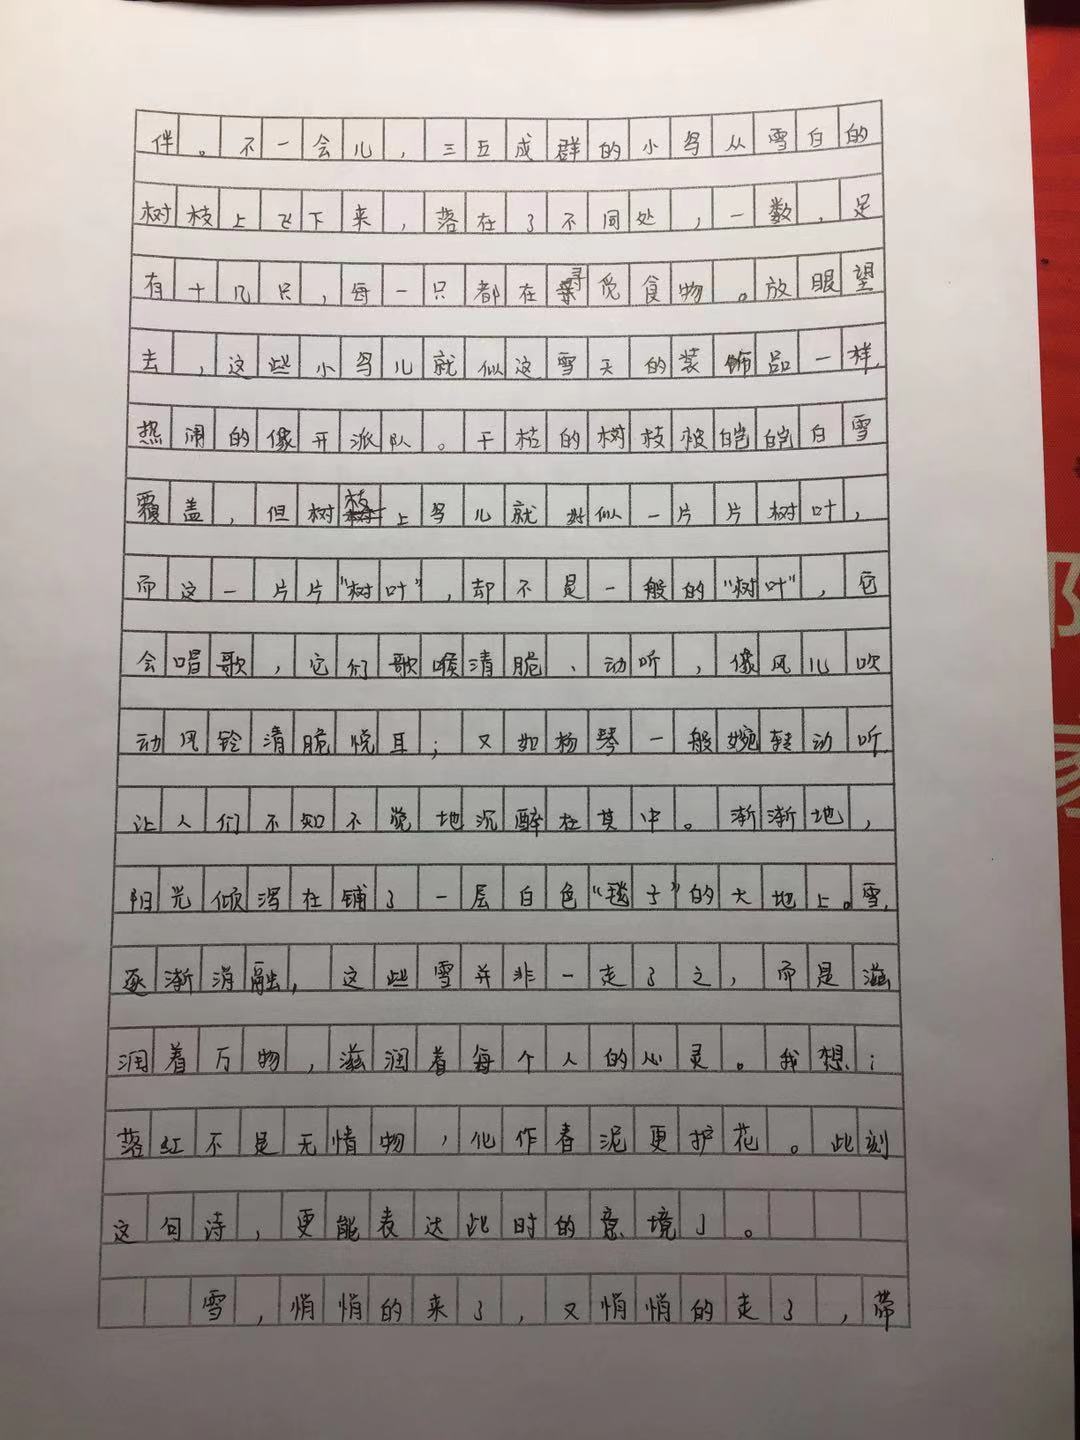 伴。不一会儿，三五成群的小鸟从雪白的
树枝上飞下来，落在了不同处，一数，足
有十几只，每一只都在寻觅食物。放眼望
去，这些小鸟儿就似这雪天的装饰品一样，
热闹的像开派队。干枯的树枝被皑皑白雪
覆盖，但树枝上鸟儿就好似一片片树叶，
而这一片片"树叶"，却不是一般的"树叶"，它
会唱歌，它们歌喉清脆、动听，像风儿吹
动风铃清脆悦耳；又如杨琴一般婉转动听，
让人们不知不觉地沉醉在其中。渐渐地，
阳光倾泻在铺了一层白色"毯子"的大地上。雪，
逐渐消融，这些雪并非一走了之，而是滋
润着万物，滋润着每个人的心灵。我想；
落红不是无情物，化作春泥更护花。此刻
这句诗，更能表达此时的意境了。
雪，悄悄的来了，又悄悄的走了，带